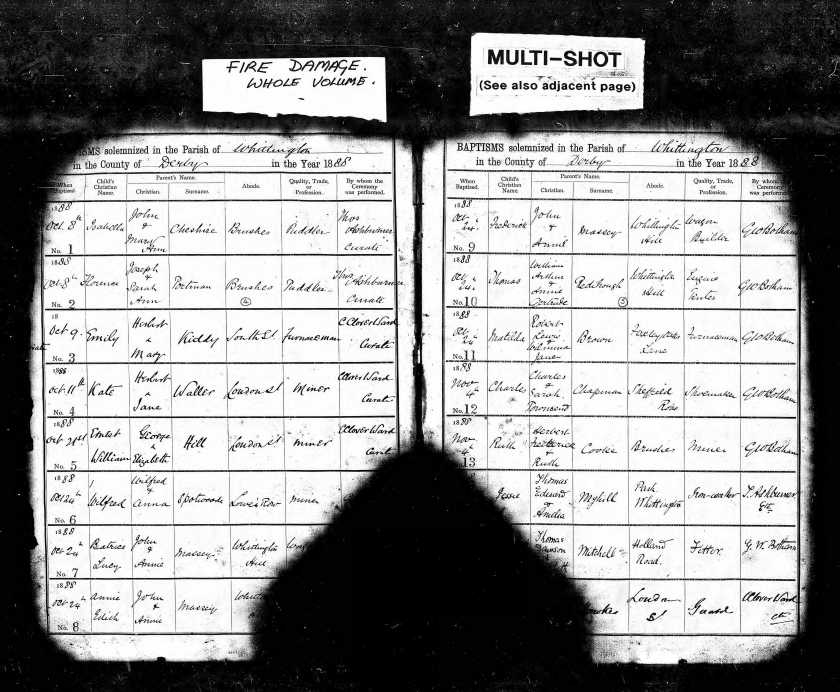 FIRE DAMAGE.
WHOLE VOLUME.
MULTI-SHOT
(See also adjacent page)
SMS solemnized in the Parish of Whittington
in the County of Derby in the Year 1888
When Baptised. Child's Christian Name. Parent's Name. Christian. Surname. Abode. Quality, Trade, or Profession. By whom the Ceremony was performed.
1888 Oct. 8th No. 1 Isabella John & Mary Ann Cheshire Brushes Puddler Thos Ashburner Curate
1888 Oct 8th No. 2 Florence Joseph & Sarah Ann Brushes Puddler Thos Ashburner Curate
4
18 Oct 9 No. 3 Emily Herbert & Mary Kiddy South St Furnaceman C Clover Ward Curate
1888 Oct 11th No. 4 Kate Herbert & Jane Waller London St Miner C Clover Ward Curate
1888 Oct 21st No. 5 Ernest William George Elizabeth Hill London St Miner C Clover Ward Curate
188 Oct 24th No. 6 Wilfred Wilfred & Anna Spotwood Lowe's Row Miner
1888 Oct 24th No. 7 Beatrice Lucy John & Annie Massey Whittington Hill
1888 Oct 24th No. 8 Annie Edith John & Annie Massey
BAPTISMS solemnized in the Parish of Whittington
in the County of Derby in the Year 1888
When Baptised. Child's Christian Name. Parent's Name. Christian. Surname. Abode. Quality, Trade, or Profession. By whom the Ceremony was performed.
1888 Oct 24 No. 9 Frederick John & Annie Massey Whittington Hill Wagon Builder Geo Botham
1888 Oct 24 No. 10 Thomas William Arthur & Annie Gertrude Whittington Hill Engine Geo Botham
1888 Oct No. 11 Matilda Robert Lewis & Jane Brown Lane Furnaceman Geo Botham
1888 Nov 4 No. 12 Charles Charles & Sarah Townsend Chapman Sheffield Road Shoemaker Geo Botham
1888 Nov 4 13 Ruth Herbert Frederick & Ruth Cooke Brushes Miner Geo Botham
Jesse Thomas Edward & Amelia Myhill Park Whittington Iron-worker T. Ashburner
Thomas Mitchell Holland Road. Fitter. G. W. Botham
London St Guard C Clover Ward